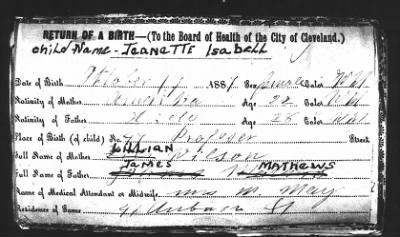 RETURN OF A BIRTH—(To the Board of Health of the City of Cleveland.)
Child Name - Jeanette Isabell
Date of Birth October 17 1887 Sex Female Color Wht
Nativity of Mother America Age 22 Color Wht
Nativity of Father Age 28 Color Wht
Place of Birth (of child) No. 47 Professor Street
Full Name of Mother LILLIAN Wilson
Full Name of Father JAMES MATHEWS
Name of Medical Attendant or Midwife, Mrs M May
Residence of Same St